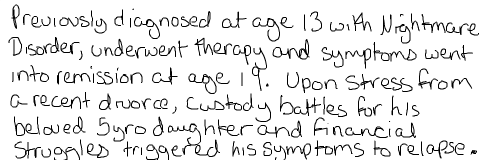 Previously diagnosed at age 13 with Nightmare
Disorder, underwent therapy and symptoms went
into remission at age 19. Upon stress from
a recent divorce, custody battles for his
beloved 5yro daughter and financial
struggles triggered his symptoms to relapse.